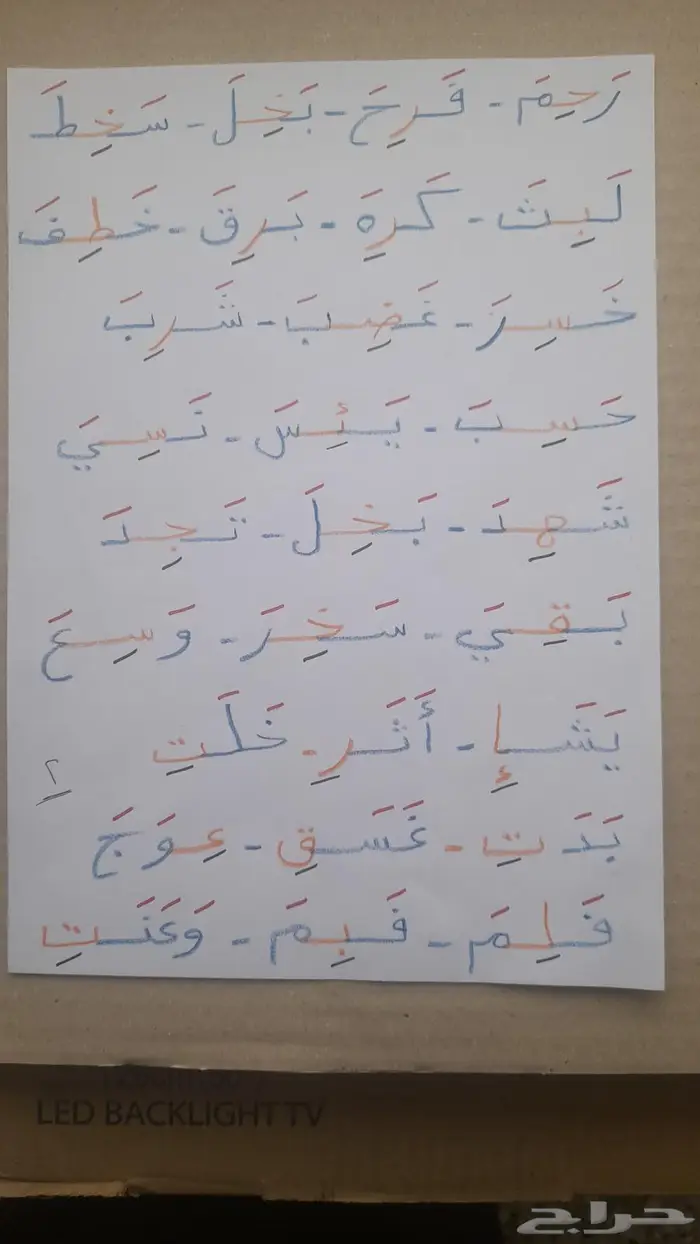 رَحِمَ - فَرِحَ - بَخِلَ - سَخِطَ
لَبِثَ - كَرِهَ - بَرِقَ - خَطِفَ
خَسِرَ - غَضِبَ - شَرِبَ
حَسِبَ - يَئِسَ - نَسِيَ
شَهِدَ - بَخِلَ - تَجِدَ
بَقِيَ - سَخِرَ - وَسِعَ
يَشَإِ - أَثَرِ - خَلَتِ
٢
بَدَتِ - غَسَقِ - عِوَجَ
فَلِمَ - فَبِمَ - وَعَنَتِ
LED BACKLIGHT TV
حراج